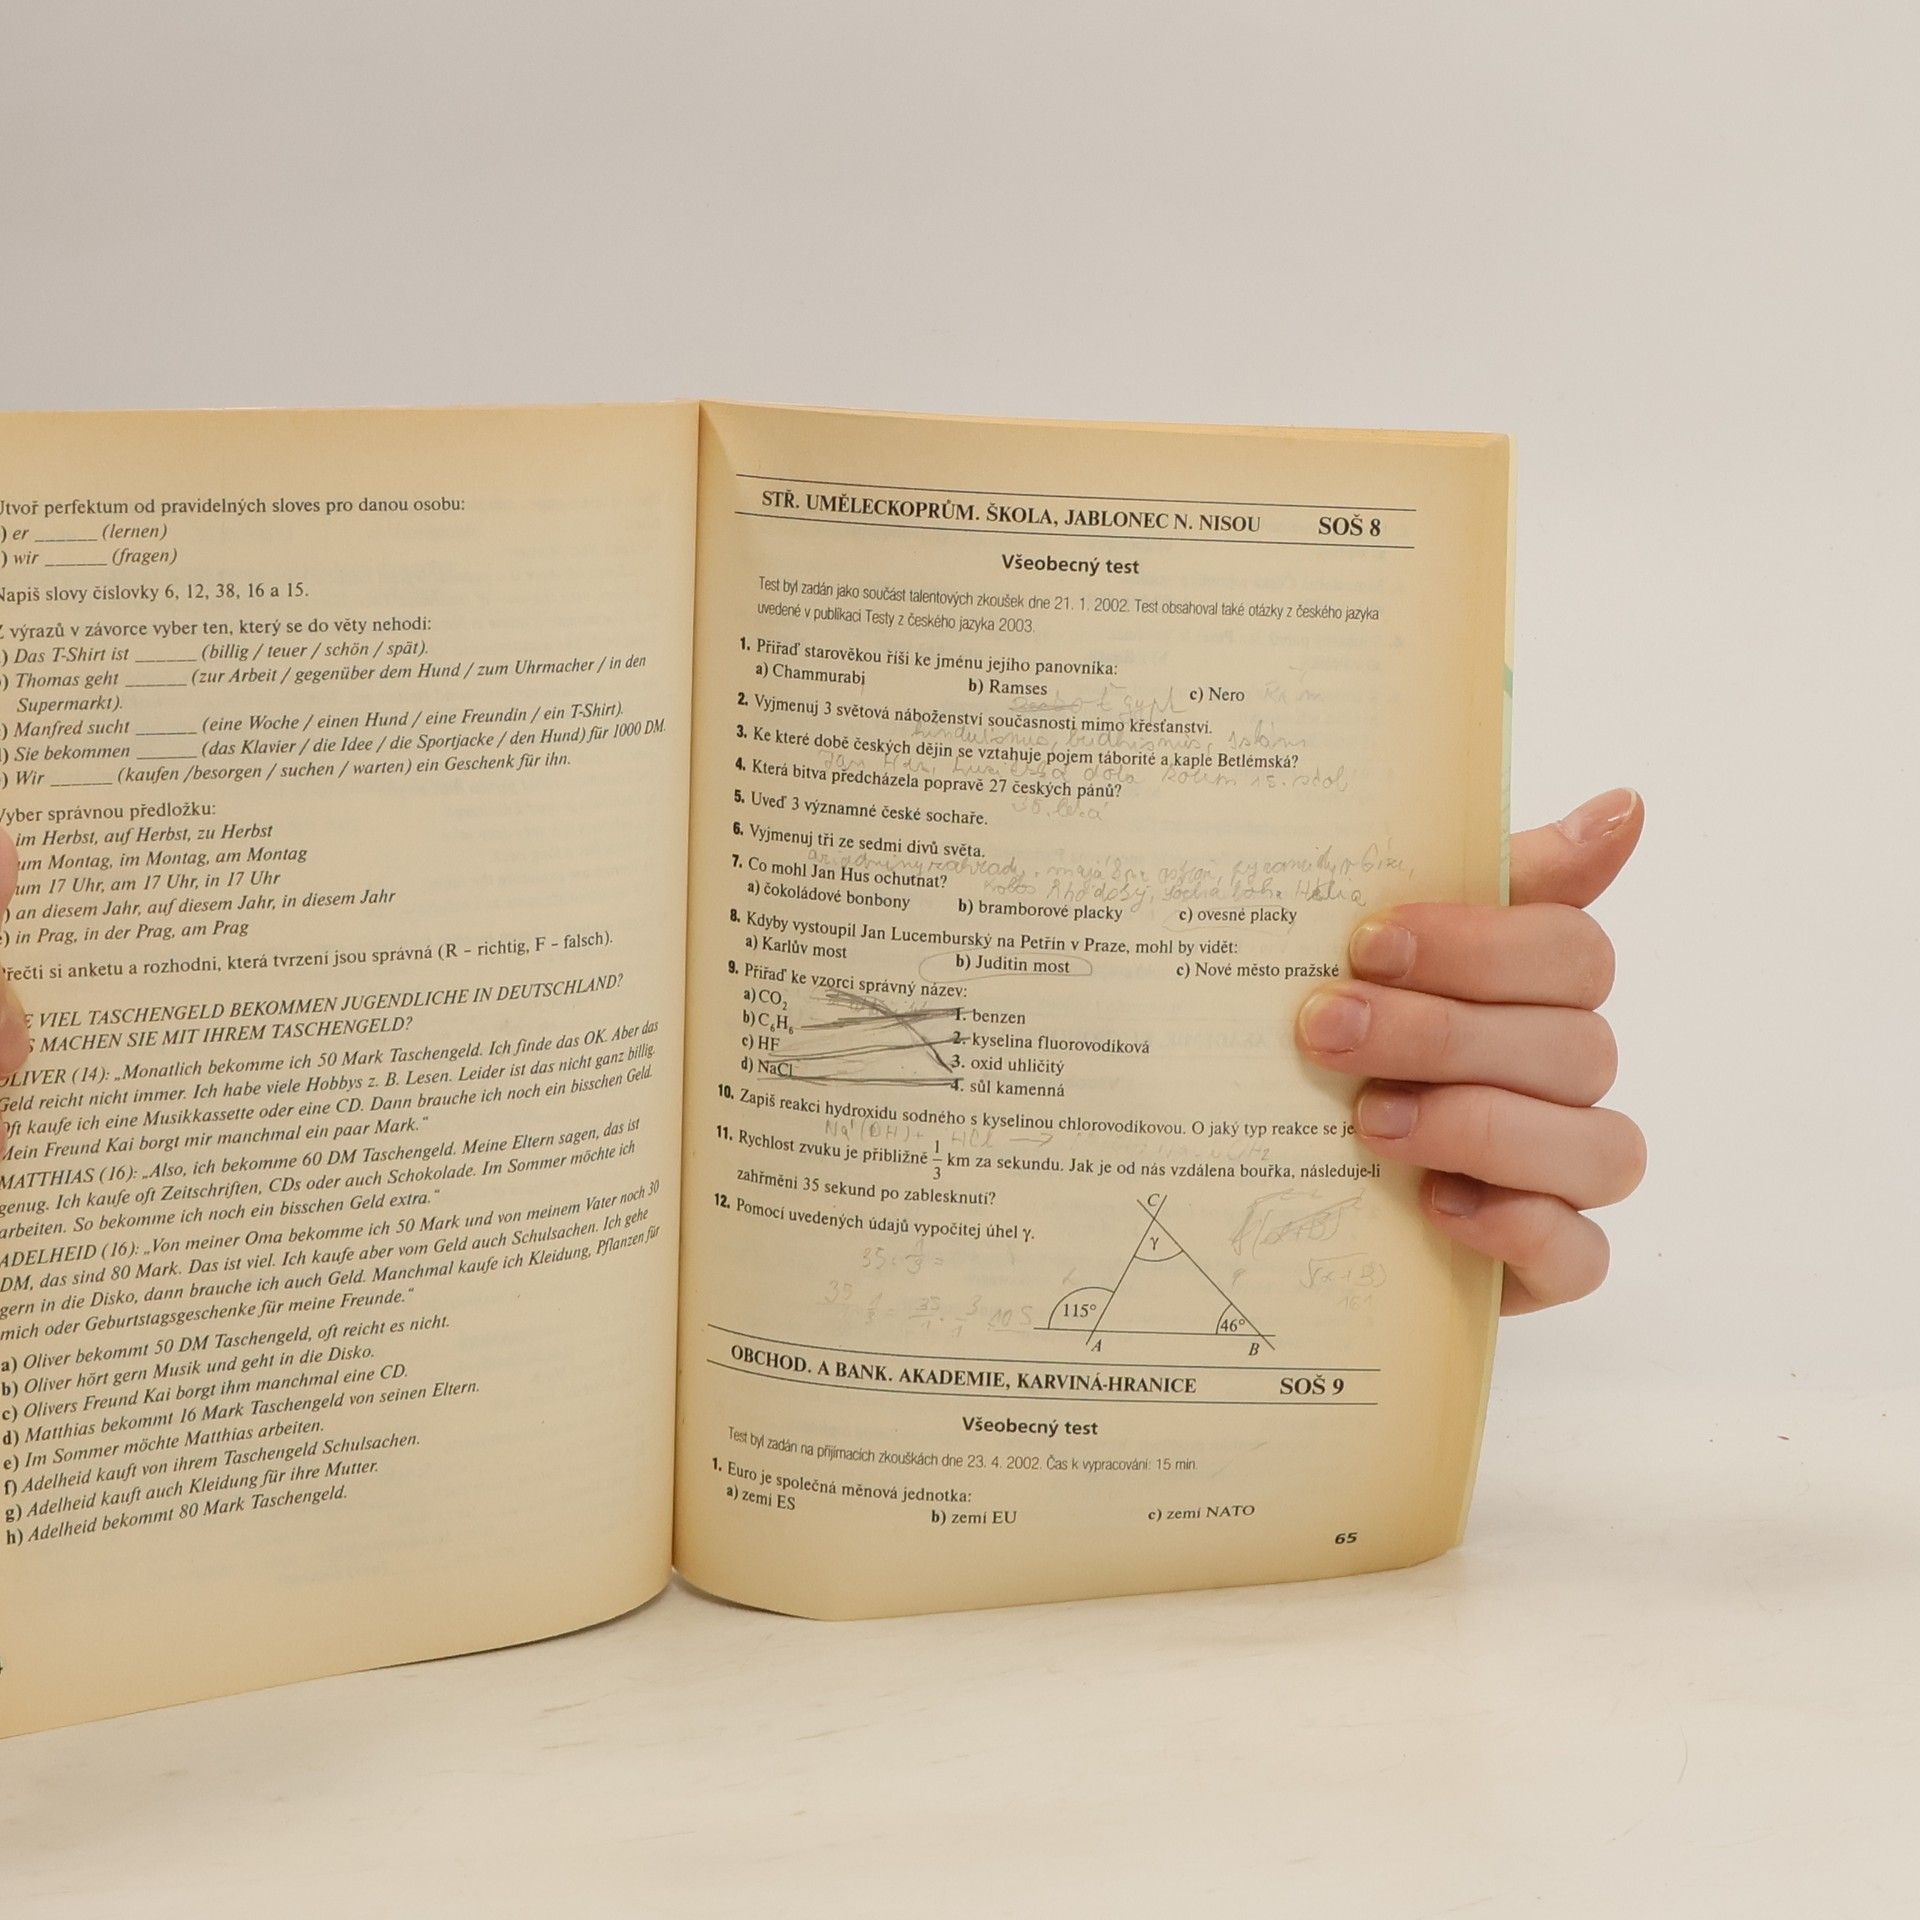 Utvoř perfektum od pravidelných sloves pro danou osobu:
) er ______ (lernen)
) wir ______ (fragen)
Napiš slovy číslovky 6, 12, 38, 16 a 15.
Z výrazů v závorce vyber ten, který se do věty nehodí:
) Das T-Shirt ist ______ (billig / teuer / schön / spät).
) Thomas geht ______ (zur Arbeit / gegenüber dem Hund / zum Uhrmacher / in den
Supermarkt).
) Manfred sucht ______ (eine Woche / einen Hund / eine Freundin / ein T-Shirt).
) Sie bekommen ______ (das Klavier / die Idee / die Sportjacke / den Hund) für 1000 DM.
) Wir ______ (kaufen /besorgen / suchen / warten) ein Geschenk für ihn.
Vyber správnou předložku:
im Herbst, auf Herbst, zu Herbst
um Montag, im Montag, am Montag
um 17 Uhr, am 17 Uhr, in 17 Uhr
) an diesem Jahr, auf diesem Jahr, in diesem Jahr
e) in Prag, in der Prag, am Prag
Přečti si anketu a rozhodni, která tvrzení jsou správná (R – richtig, F – falsch).
E VIEL TASCHENGELD BEKOMMEN JUGENDLICHE IN DEUTSCHLAND?
S MACHEN SIE MIT IHREM TASCHENGELD?
OLIVER (14): „Monatlich bekomme ich 50 Mark Taschengeld. Ich finde das OK. Aber das
Geld reicht nicht immer. Ich habe viele Hobbys z. B. Lesen. Leider ist das nicht ganz billig.
Oft kaufe ich eine Musikkassette oder eine CD. Dann brauche ich noch ein bisschen Geld.
Mein Freund Kai borgt mir manchmal ein paar Mark.“
MATTHIAS (16): „Also, ich bekomme 60 DM Taschengeld. Meine Eltern sagen, das ist
genug. Ich kaufe oft Zeitschriften, CDs oder auch Schokolade. Im Sommer möchte ich
arbeiten. So bekomme ich noch ein bisschen Geld extra.“
ADELHEID (16): „Von meiner Oma bekomme ich 50 Mark und von meinem Vater noch 30
DM, das sind 80 Mark. Das ist viel. Ich kaufe aber vom Geld auch Schulsachen. Ich gehe
gern in die Disko, dann brauche ich auch Geld. Manchmal kaufe ich Kleidung, Pflanzen für
mich oder Geburtstagsgeschenke für meine Freunde.“
a) Oliver bekommt 50 DM Taschengeld, oft reicht es nicht.
b) Oliver hört gern Musik und geht in die Disko.
c) Olivers Freund Kai borgt ihm manchmal eine CD.
d) Matthias bekommt 16 Mark Taschengeld von seinen Eltern.
e) Im Sommer möchte Matthias arbeiten.
f) Adelheid kauft von ihrem Taschengeld Schulsachen.
g) Adelheid kauft auch Kleidung für ihre Mutter.
h) Adelheid bekommt 80 Mark Taschengeld.
STŘ. UMĚLECKOPRŮM. ŠKOLA, JABLONEC N. NISOU SOŠ 8
Všeobecný test
Test byl zadán jako součást talentových zkoušek dne 21. 1. 2002. Test obsahoval také otázky z českého jazyka
uvedené v publikaci Testy z českého jazyka 2003.
1. Přiřaď starověkou říši ke jménu jejího panovníka:
a) Chammurabi b) Ramses c) Nero Řím
Egypt
2. Vyjmenuj 3 světová náboženství současnosti mimo křesťanství.
hinduismus, budhismus, islám
3. Ke které době českých dějin se vztahuje pojem táborité a kaple Betlémská?
Jan Hus, kolem 15. stol.
4. Která bitva předcházela popravě 27 českých pánů?
5. Uveď 3 významné české sochaře.
6. Vyjmenuj tři ze sedmi divů světa.
zahrady, pyramidy v Gíze,
7. Co mohl Jan Hus ochutnat?
socha boha Hélia
a) čokoládové bonbony b) bramborové placky c) ovesné placky
8. Kdyby vystoupil Jan Lucemburský na Petřín v Praze, mohl by vidět:
a) Karlův most b) Juditin most c) Nové město pražské
9. Přiřaď ke vzorci správný název:
a) CO2 1. benzen
b) C6H6 2. kyselina fluorovodíková
c) HF 3. oxid uhličitý
d) NaCl 4. sůl kamenná
10. Zapiš reakci hydroxidu sodného s kyselinou chlorovodíkovou. O jaký typ reakce se je
Na(OH) + HCl →
11. Rychlost zvuku je přibližně 1/3 km za sekundu. Jak je od nás vzdálena bouřka, následuje-li
zahřmění 35 sekund po zablesknutí?
12. Pomocí uvedených údajů vypočítej úhel γ.
C
γ
115°
46°
A B
OBCHOD. A BANK. AKADEMIE, KARVINÁ-HRANICE SOŠ 9
Všeobecný test
Test byl zadán na přijímacích zkouškách dne 23. 4. 2002. Čas k vypracování: 15 min.
1. Euro je společná měnová jednotka:
a) zemí ES b) zemí EU c) zemí NATO
65